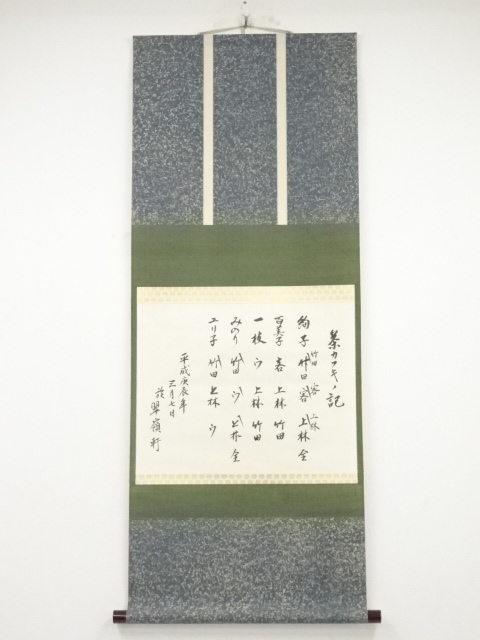 茶カブキノ記
竹田 客 上林
絢子 竹田 客 上林 全
百美子 客 上林 竹田
一枝 ウ 上林 竹田
みのり 竹田 ウ 上林 全
ユリ子 竹田 上林 ウ
平成庚辰年
三月七日
於翠嶺軒